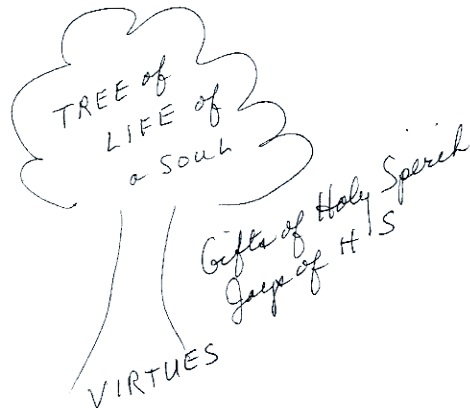 TREE of
LIFE of
a SOUL
Gifts of Holy Spirit
Joys of H S
VIRTUES